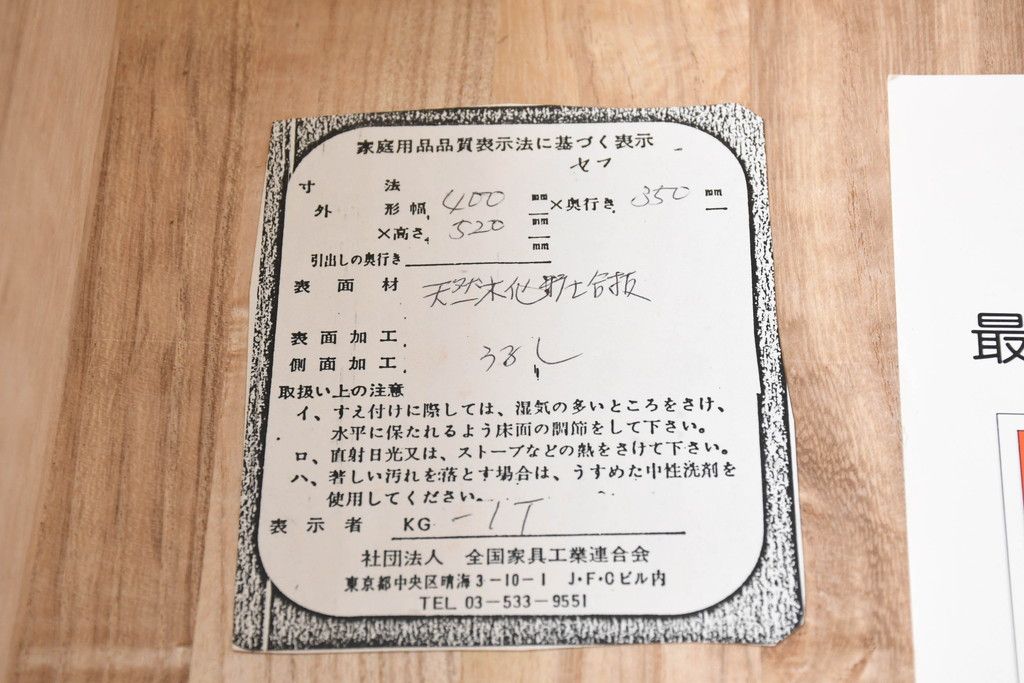 家庭用品品質表示法に基づく表示
寸法
外形幅 400 mm ×奥行き 350 mm
×高さ 520 mm
引出しの奥行き mm
表面材 天然木化粧合板
表面加工
側面加工
取扱い上の注意
イ、すえ付けに際しては、湿気の多いところをさけ、
水平に保たれるよう床面の調節をして下さい。
ロ、直射日光又は、ストーブなどの熱をさけて下さい。
ハ、著しい汚れを落とす場合は、うすめた中性洗剤を
使用してください。
表示者 KG-1T
社団法人 全国家具工業連合会
東京都中央区晴海3-10-1 J・F・Cビル内
TEL 03-533-9551
最